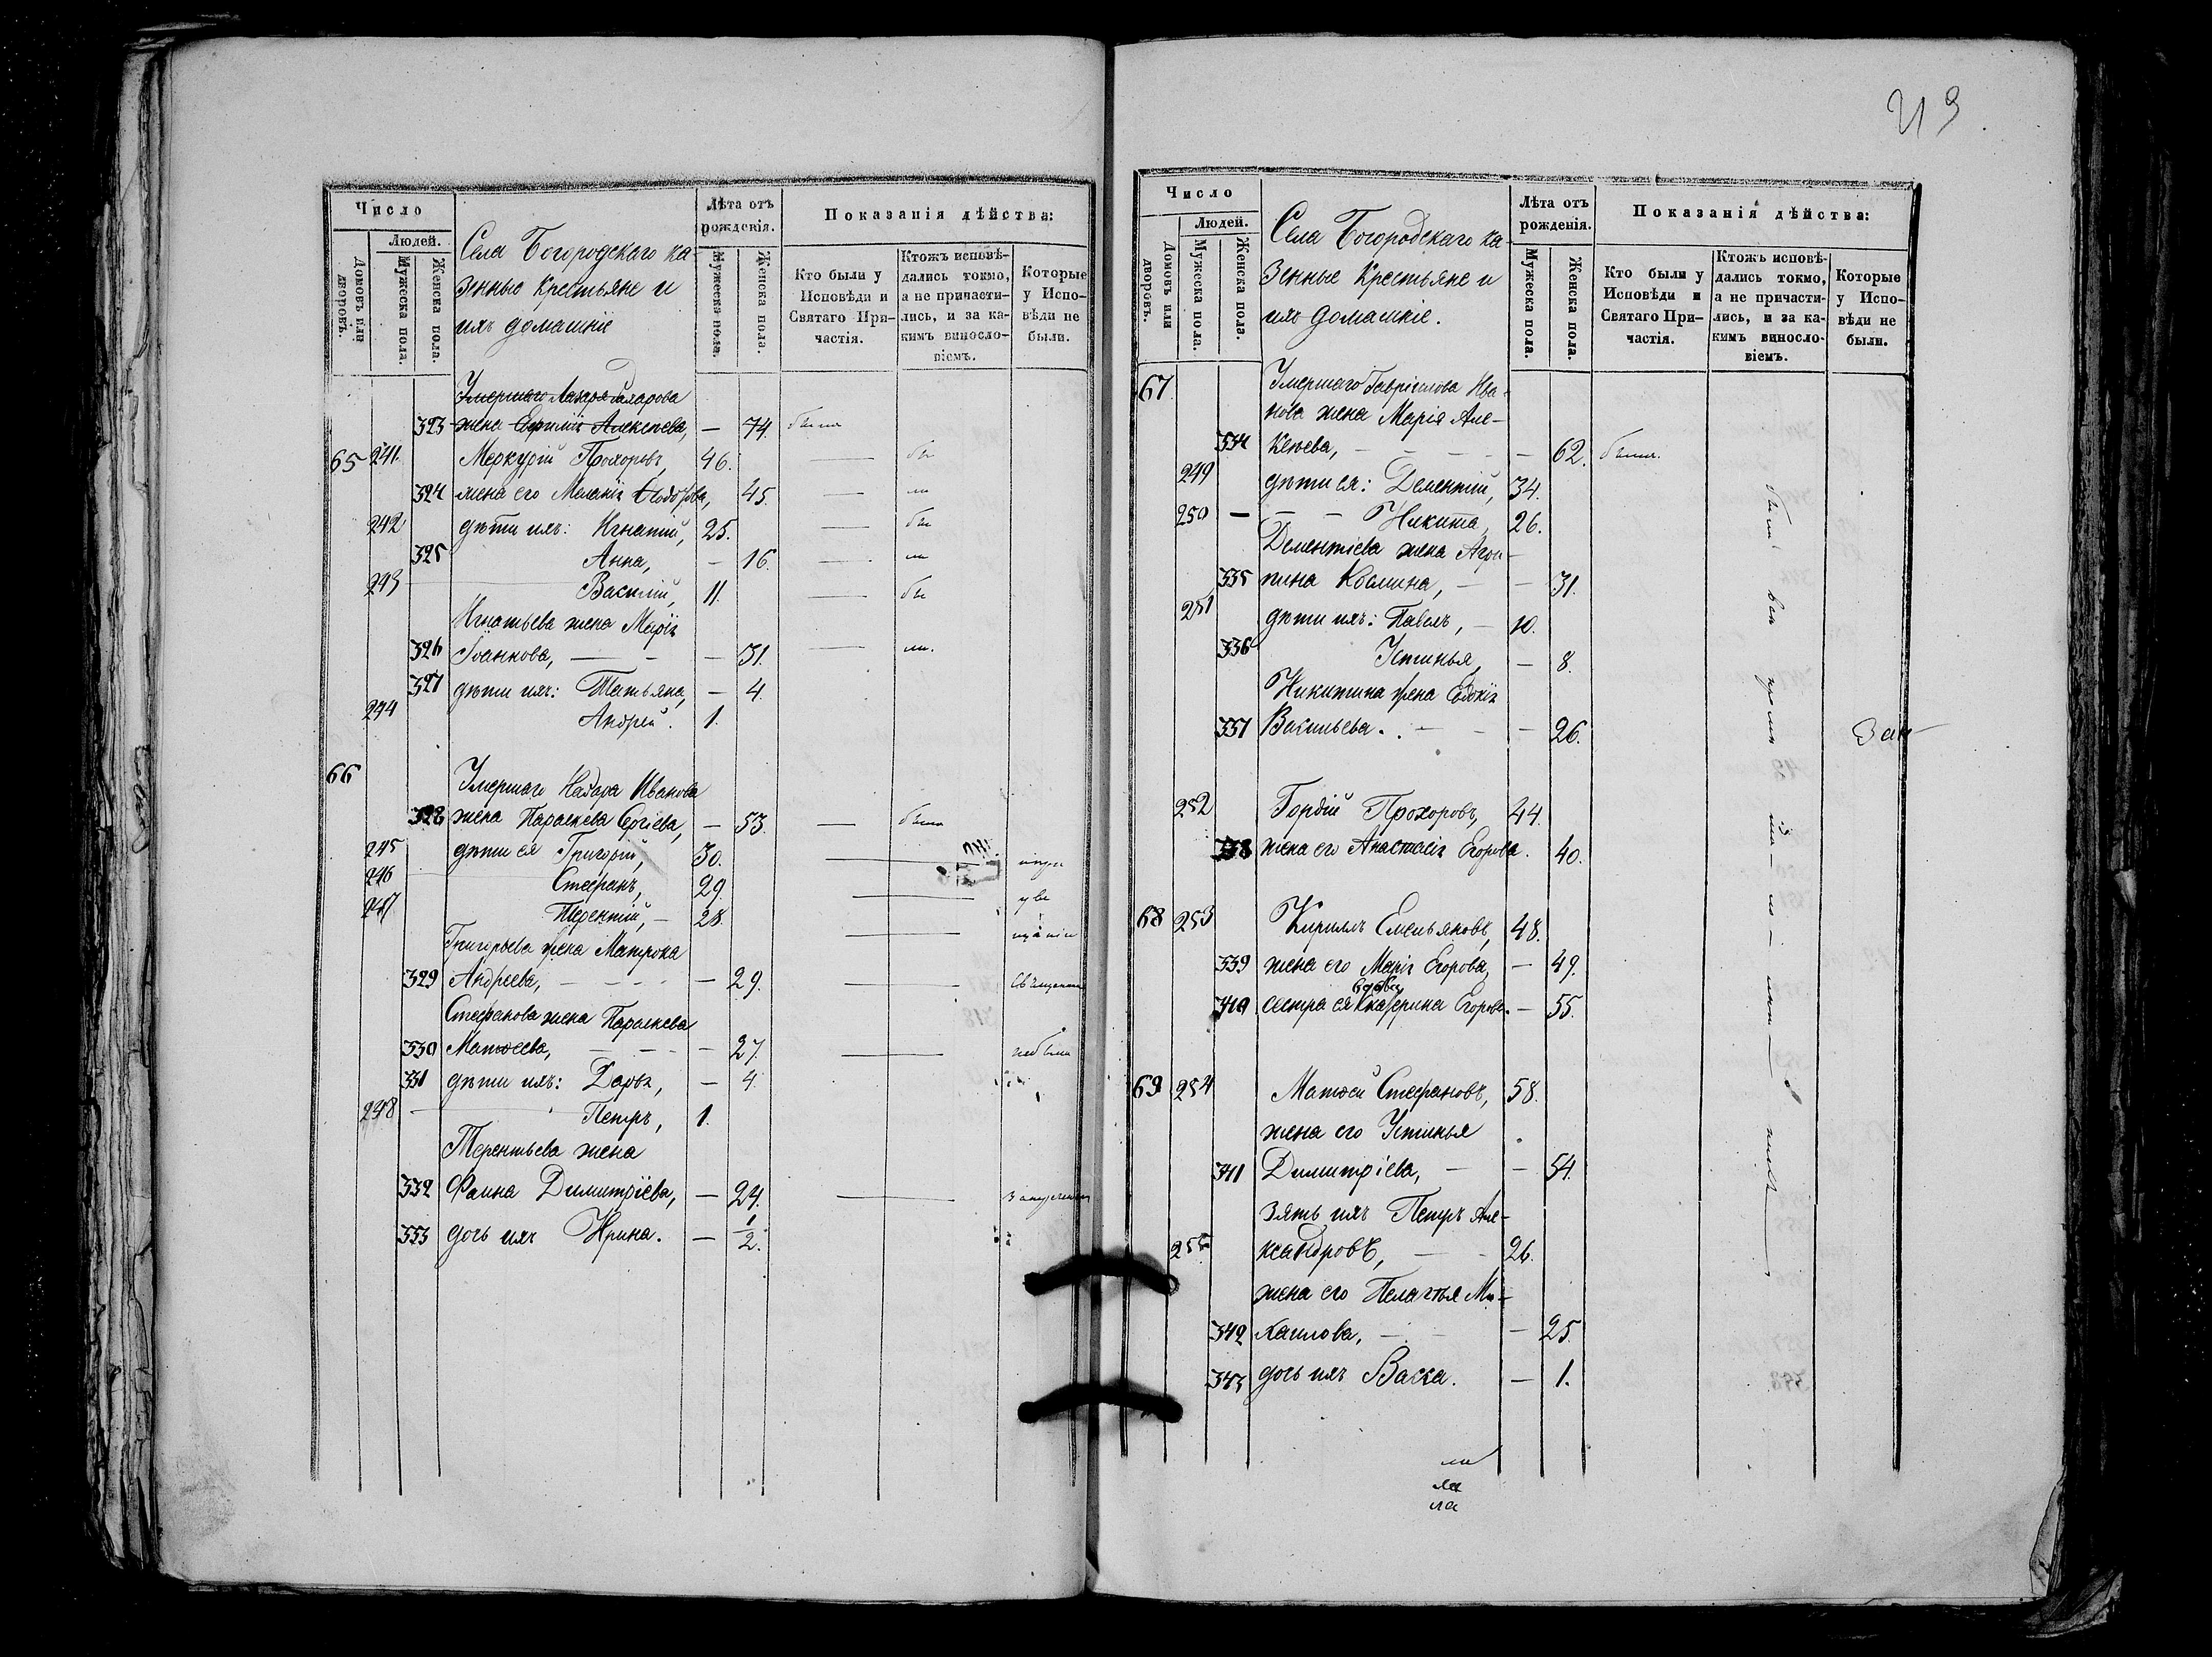 Число
Людей.
Домовъ или дворовъ.
Мужеска пола.
Женска пола.
Села Богородскаго ка-
зенные крестьяне и
ихъ домашніе
Лѣта отъ рожденія.
Мужеска пола.
Женска пола.
Показанія дѣйства:
Кто были у Исповѣди и Святаго Причастія.
Ктожъ исповѣдались токмо, а не причастились, и за какимъ винословіемъ.
Которые у Исповѣди не были.
Умершаго Лазаря
323 жена Алексѣева, — 74. была
65 241 Меркурій Прохоровъ, 46. — бы
324 жена его Меланія Ѳеодорова, 45. — ли
242 дѣти ихъ: Игнатій, 25. — бы
325 Анна, — 16. — ли
243 Василій, 11. — бы
Игнатьева жена Марія
326 — — 31. — ли.
327 дѣти ихъ: Татьяна, — 4.
244 Андрей. 1.
66 Умершаго Назара Иванова
328 жена Параскева Сергіева, — 53. — была
245 дѣти ея Григорій, 30. —
246 Стефанъ, 29. —
247 Терентій, — 28. —
Григорьева жена Матрона
329 Андреева, — — 29. —
Стефанова жена Параскева
330 Матѳеева, — — 27. —
331 дѣти ихъ: Дарья, — 4.
248 Петръ, 1.
Терентьева жена
332 Фаина Димитріева, — 24. —
333 дочь ихъ Ирина. — 1/2.
213.
Число
Людей.
Домовъ или дворовъ.
Мужеска пола.
Женска пола.
Села Богородскаго ка-
зенные крестьяне и
ихъ домашніе.
Лѣта отъ рожденія.
Мужеска пола.
Женска пола.
Показанія дѣйства:
Кто были у Исповѣди и Святаго Причастія.
Ктожъ исповѣдались токмо, а не причастились, и за какимъ винословіемъ.
Которые у Исповѣди не были.
67 Умершаго Гавріилова Ива-
нова жена Марія Але-
334 ксѣева, — — 62. была.
249 дѣти ея: Дементій, 34.
250 — — — Никита, 26.
Дементіева жена Агри-
335 пина Козмина, — — 31.
251 дѣти ихъ: Павелъ, — 10.
336 Устинья, — 8.
Никитина жена Евдокія
337 Васильева. — — 26.
252 Гордій Прохоровъ, 44.
338 жена его Анастасія Егорова. 40.
68 253 Кириллъ Емельяновъ, 48.
339 жена его Марія Егорова, — 49.
вдова
340 сестра ея Екатерина Егорова. — 55.
69 254 Матѳей Стефановъ, 58.
жена его Устинья
341 Димитріева, — — 54.
зять ихъ Петръ Але-
255 ксандровъ, — 26.
жена его Пелагея Ми-
342 хаилова, — — 25.
343 дочь ихъ Васса. — 1.
ли
ла
ла